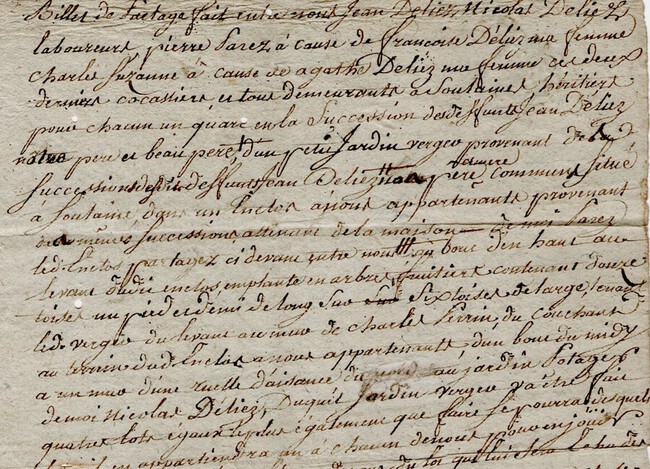 Billet de Partage fait entre nous Jean Deliez, Nicolas Deliez
laboureurs pierre Parez, à cause de francoise Déliez ma femme
Charles Suzanne à cause de agathe Deliez ma femme ces deux
derniers cocassiers et tous demeurants à Soulaines, héritiers
pour chacun un quart en la Succession des deffunts Jean Déliez
notre père et beau père, d'un petit Jardin verger provenant de la
Succession dedit deffunt Jean Deliez père commun Situé
a Soulaine, dans un Enclos à nous appartenants provenant
des mêmes Successions, attenant de la maison de moi Parez
led. Enclos partagez ci devant entre nous au bout d'en haut au
levant dudit enclos, emplanté en arbres fruitiers contenant douze
toises un pied et demi de long Sur Six toises de large, tenant
led. verger du levant au mur de Charles Perrin, du Couchant
au terrein dud. Enclos à nous appartenants, d'un bout du midy
a un mur d'une ruelle d'aisance du nord au jardin Potager
de moi Nicolas Déliez, Duquel Jardin verger y a été fait
quatre lots égaux le plus également que faire Se pourra desquels
il en appartiendra un à chacun de nous pour en jouir
du lot qui lui Sera